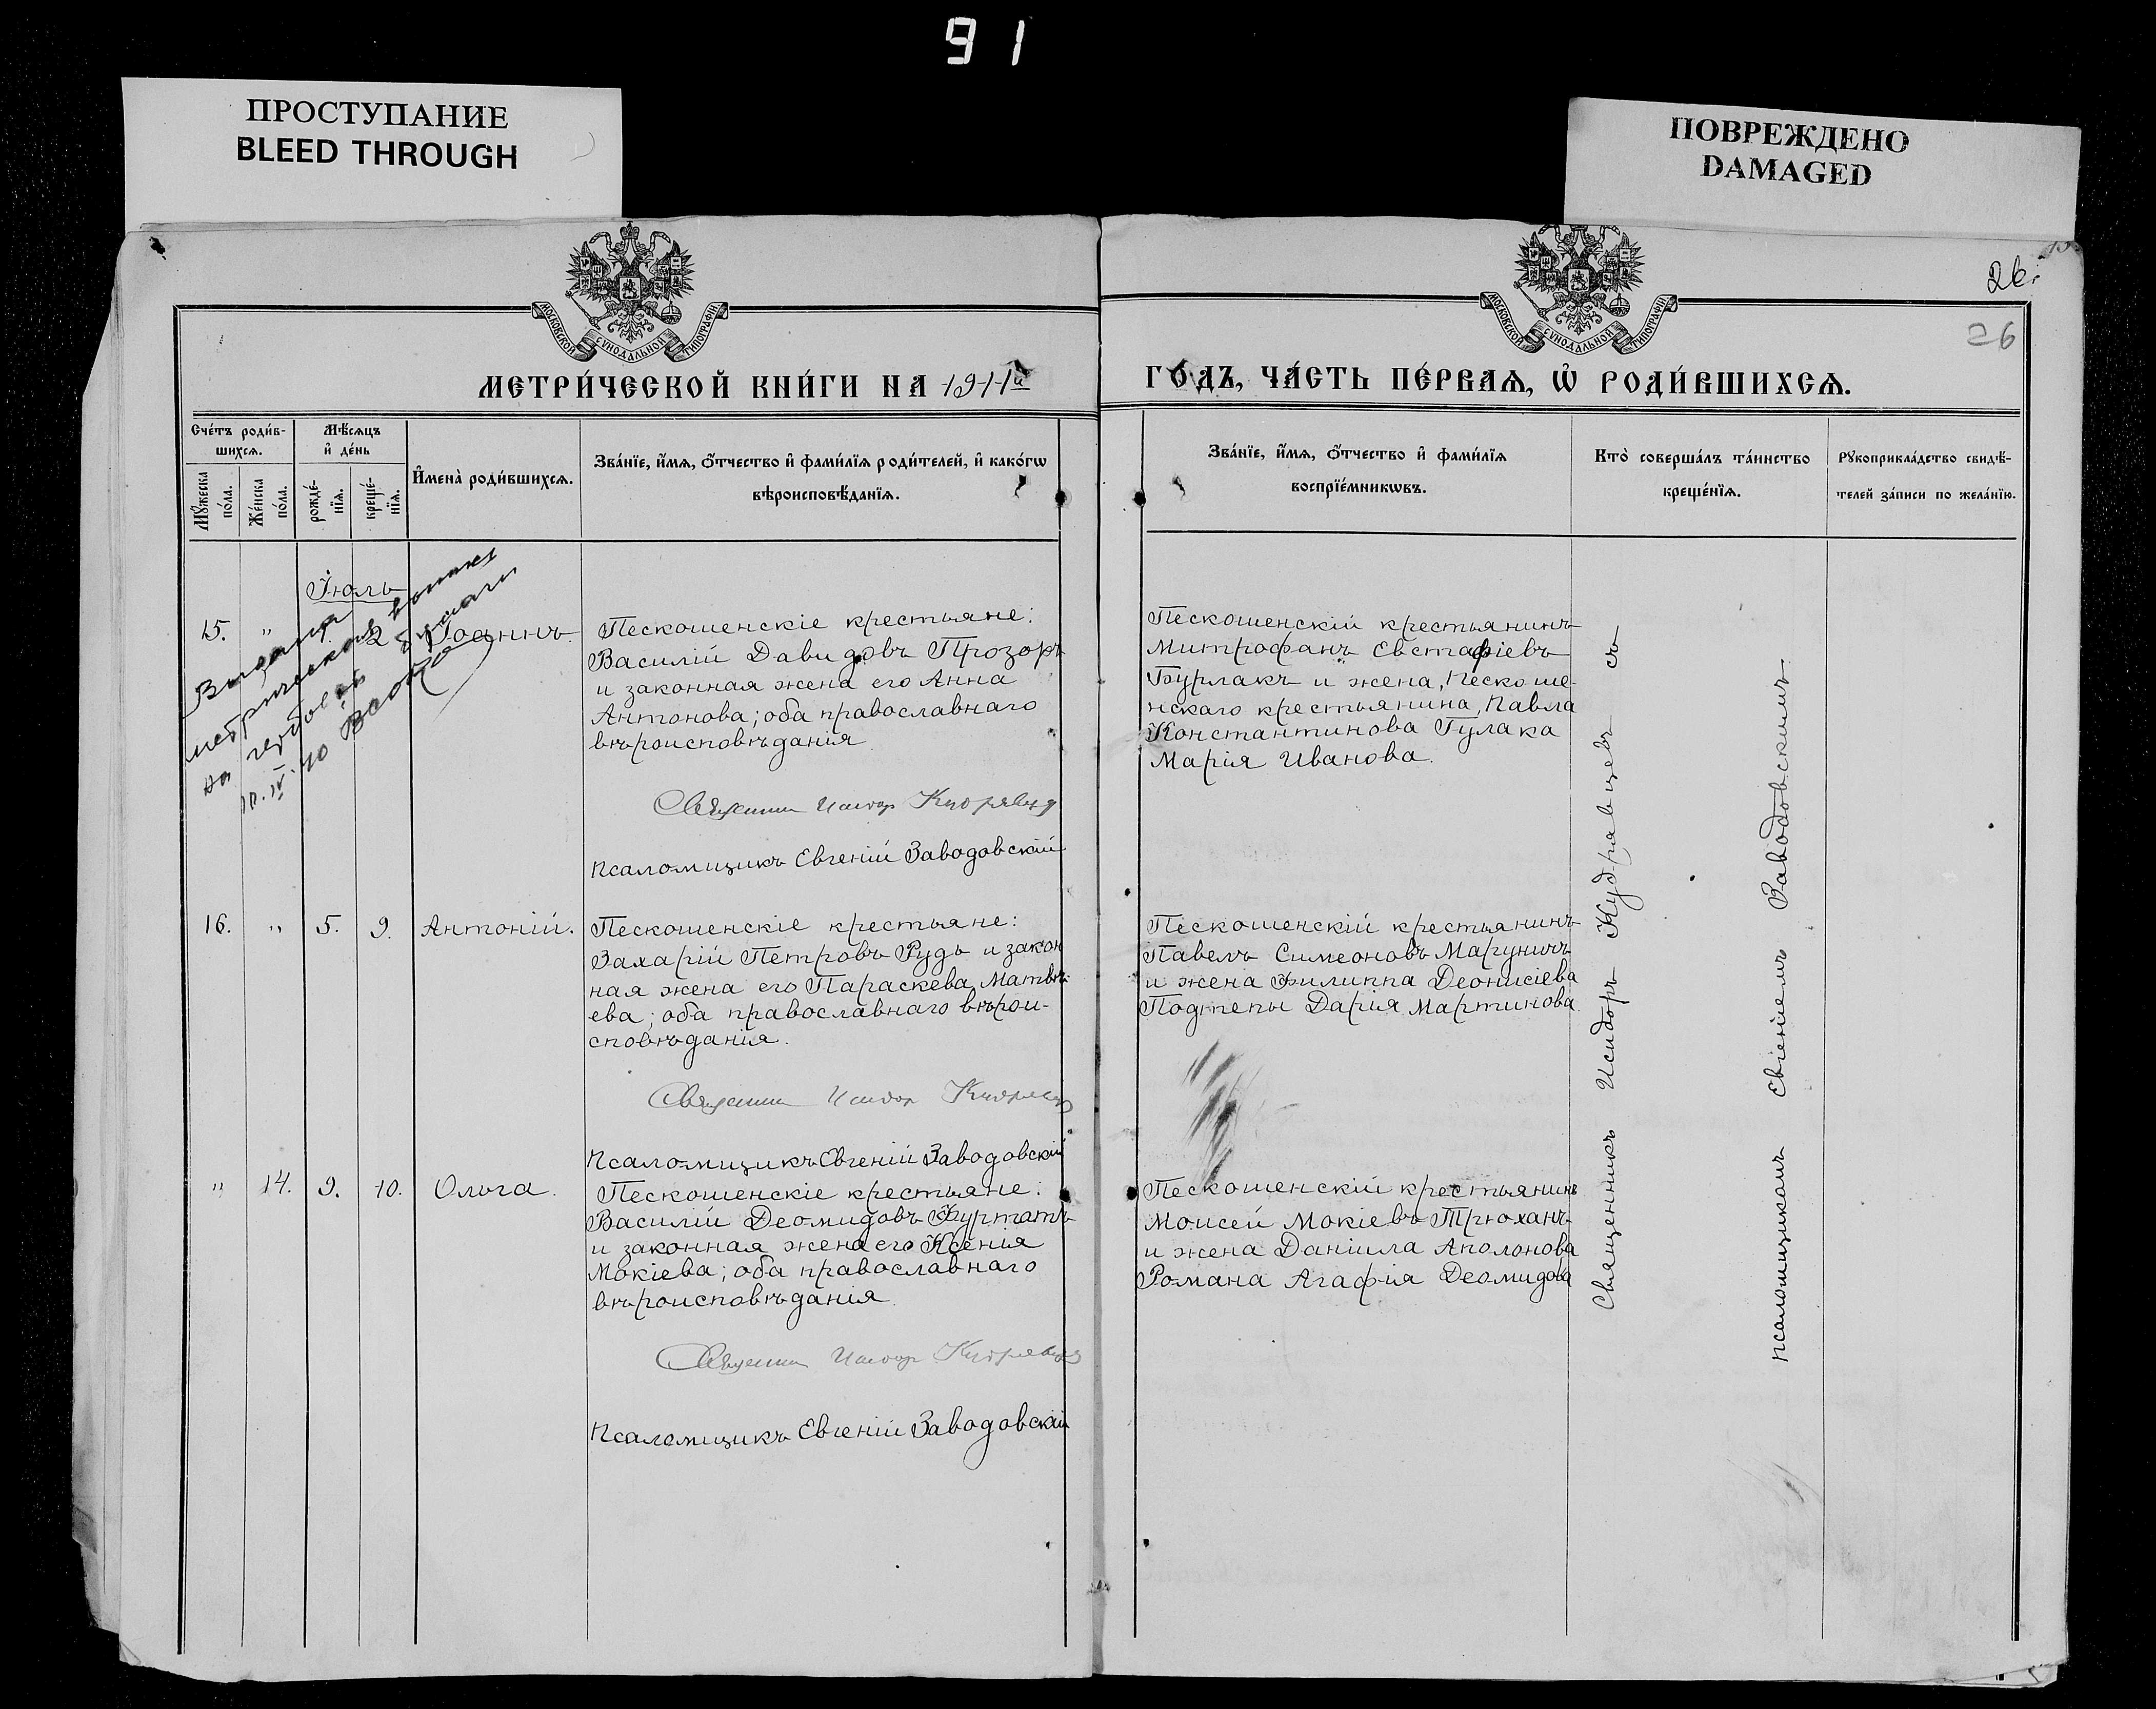 91
ПРОСТУПАНИЕ
BLEED THROUGH
ПОВРЕЖДЕНО
DAMAGED
МОСКОВСКОЙ СѴНОДАЛЬНОЙ ТИПОГРАФІИ
МОСКОВСКОЙ СѴНОДАЛЬНОЙ ТИПОГРАФІИ
26
26
МЕТРИ́ЧЕСКОЙ КНИ́ГИ НА 1911й
ГО́ДЪ, ЧА́СТЬ ПЕ́РВАѦ, Ѡ҆ РОДИ́ВШИХСѦ.
Сче́тъ роди́в-
шихсѧ.
Мꙋ́жеска
по́ла.
Же́нска
по́ла.
Мѣ́сѧцъ
и҆ де́нь
рожде́-
нїѧ.
креще́-
нїѧ.
И҆мена̀ роди́вшихсѧ.
Зва́нїе, и҆́мѧ, ѻ҆́тчество и҆ фами́лїѧ роди́телей, и҆ како́гѡ
вѣроисповѣ́данїѧ.
Зва́нїе, и҆́мѧ, ѻ҆́тчество и҆ фами́лїѧ
воспрїе́мникѡвъ.
Кто̀ соверша́лъ та́инство
креще́нїѧ.
Рꙋкоприкла́дство свидѣ́-
телей за́писи по жела́нїю.
Іюль
15. " 1. 2. Іоаннъ
Выдана
метрическая выпись
на гербовой бумаги
10. IV. 40
Пескошенскіе крестьяне:
Василій Давидовъ Прозоръ
и законная жена его Анна
Антонова; оба православнаго
вѣроисповѣданія.
Священник Исидор Кудрявцев
Псаломщикъ Евгеній Заводовскій
Пескошенскій крестьянинъ
Митрофанъ Евстафіевъ
Бурлакъ и жена, Пескоше-
нскаго крестьянина, Павла
Константинова Гулака
Марія Иванова.
16. " 5. 9. Антоній.
Пескошенскіе крестьяне:
Захарій Петровъ Рудь и закон
ная жена его Параскева Матвѣ-
ева; оба православнаго вѣрои-
сповѣданія.
Священник Исидор Кудрявцев
Псаломщикъ Евгеній Заводовскій
Пескошенскій крестьянинъ
Павелъ Симеоновъ Маруничъ
и жена Филиппа Деонисіева
Подтепы Дарія Мартинова
" 14. 9. 10. Ольга.
Пескошенскіе крестьяне:
Василій Деомидовъ Фуртатъ
и законная жена его Ксенія
Мокіева; оба православнаго
вѣроисповѣданія.
Священник Исидор Кудрявцев
Псаломщикъ Евгеній Заводовскій
Пескошенскій крестьянинъ
Моисей Мокіевъ Трюханъ
и жена Даніила Аполонова
Романа Агафія Деомидова
Священникъ Исидоръ Кудрявцевъ съ
псаломщикомъ Евгеніемъ Заводовскимъ